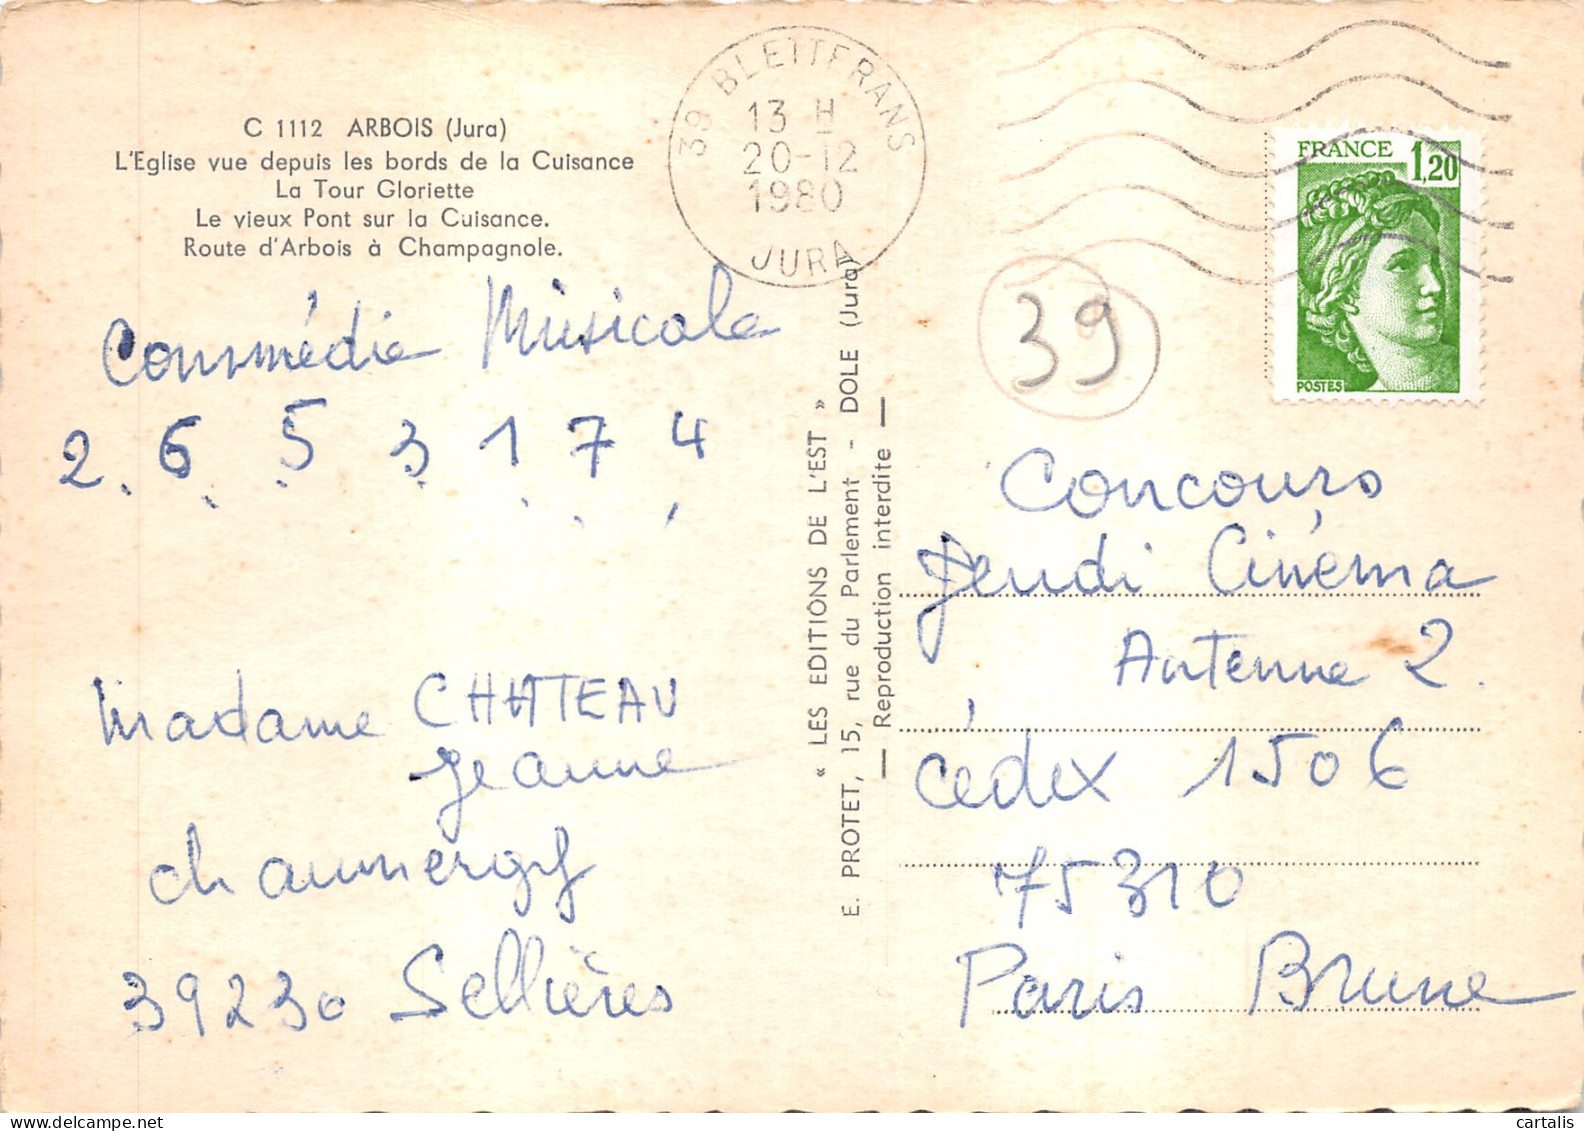 C 1112 ARBOIS (Jura)
L'Eglise vue depuis les bords de la Cuisance
La Tour Gloriette
Le vieux Pont sur la Cuisance.
Route d'Arbois à Champagnole.
39 BLETTERANS
13 H
20-12
1980
JURA
FRANCE 1,20
POSTES
39
Commédie Musicale
2. 6. 5. 3. 1. 7. 4.
Madame CHATEAU
Jeanne
chaumergy
39230 Sellières
« LES EDITIONS DE L'EST »
E. PROTET, 15, rue du Parlement - DOLE (Jura)
— Reproduction interdite —
Concours
Jeudi Cinéma
Antenne 2.
cédex 1506
75310
Paris Brune
cartalis
delcampe.net